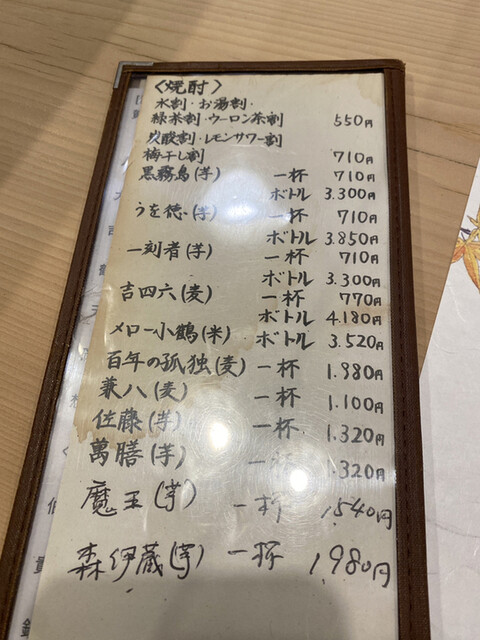 〈焼酎〉
水割・お湯割・
緑茶割・ウーロン茶割 550円
炭酸割・レモンサワー割
梅干し割 710円
黒霧島(芋) 一杯 710円
ボトル 3.300円
うを徳(芋) 一杯 710円
ボトル 3.850円
一刻者(芋) 一杯 710円
ボトル 3.300円
吉四六(麦) 一杯 770円
ボトル 4.180円
メロー小鶴(米) ボトル 3.520円
百年の孤独(麦) 一杯 1.980円
兼八(麦) 一杯 1.100円
佐藤(芋) 一杯 1.320円
萬膳(芋) 一杯 1.320円
魔王(芋) 一杯 1.540円
森伊蔵(芋) 一杯 1.980円